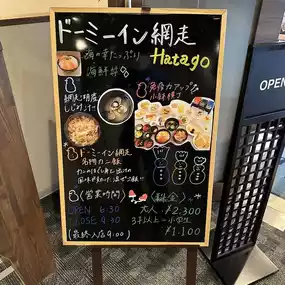 ドーミーイン網走
Hatago
海の幸たっぷり
海鮮丼
網走湖産
しじみ汁
免疫力アップ
小鉢横丁
ドーミーイン網走
名物カニ飯
(営業時間)
OPEN 6:30
CLOSE 9:30
(最終入店9:00)
(料金)
大人 ¥2,300
3才以上~小学生
¥1,100
OPEN